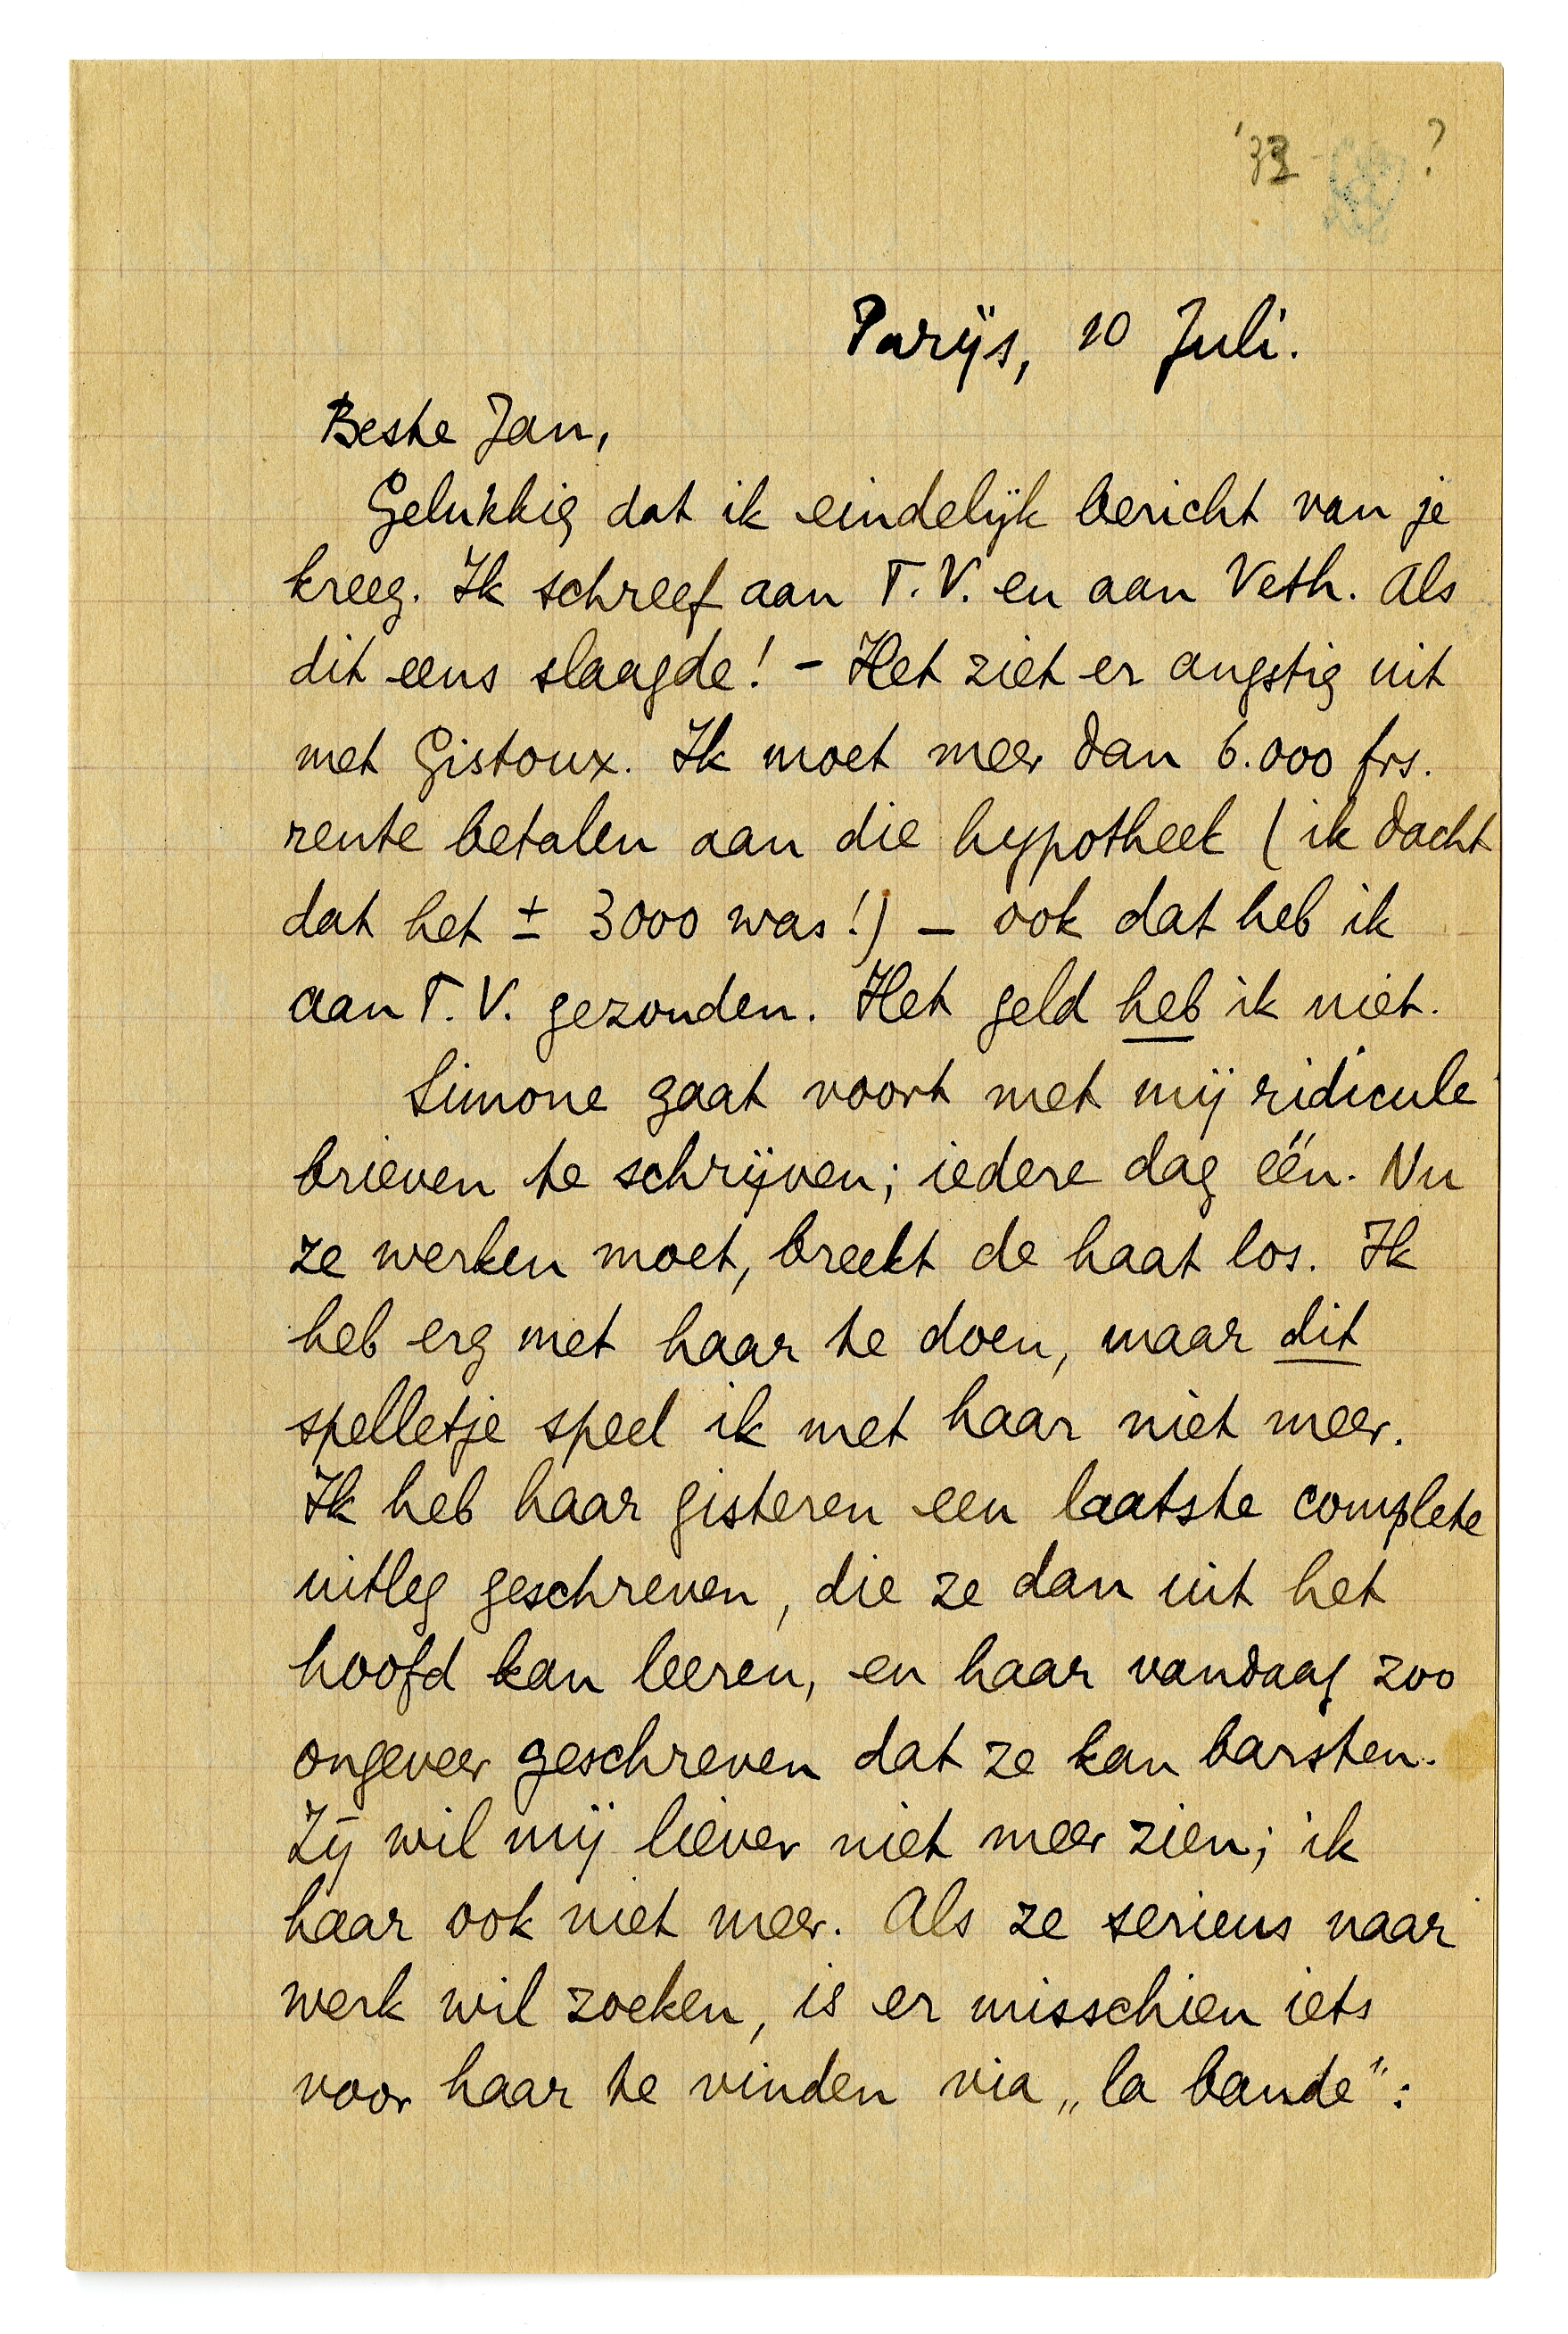 '33 ?
Parijs, 10 Juli.
Beste Jan,
Gelukkig dat ik eindelijk bericht van je
kreeg. Ik schreef aan T.V. en aan Veth. Als
dit eens slaagde! – Het ziet er angstig uit
met Gistoux. Ik moet meer dan 6.000 frs.
rente betalen aan die hypotheek (ik dacht
dat het ± 3000 was!) – ook dat heb ik
aan T.V. gezonden. Het geld heb ik niet.
Simone gaat voort met mij ridicule
brieven te schrijven; iedere dag één. Nu
ze werken moet, breekt de haat los. Ik
heb erg met haar te doen, maar dit
spelletje speel ik met haar niet meer.
Ik heb haar gisteren een laatste complete
uitleg geschreven, die ze dan uit het
hoofd kan leeren, en haar vandaag zoo
ongeveer geschreven dat ze kan barsten.
Zij wil mij liever niet meer zien; ik
haar ook niet meer. Als ze serieus naar
werk wil zoeken, is er misschien iets
voor haar te vinden via „la bande”: